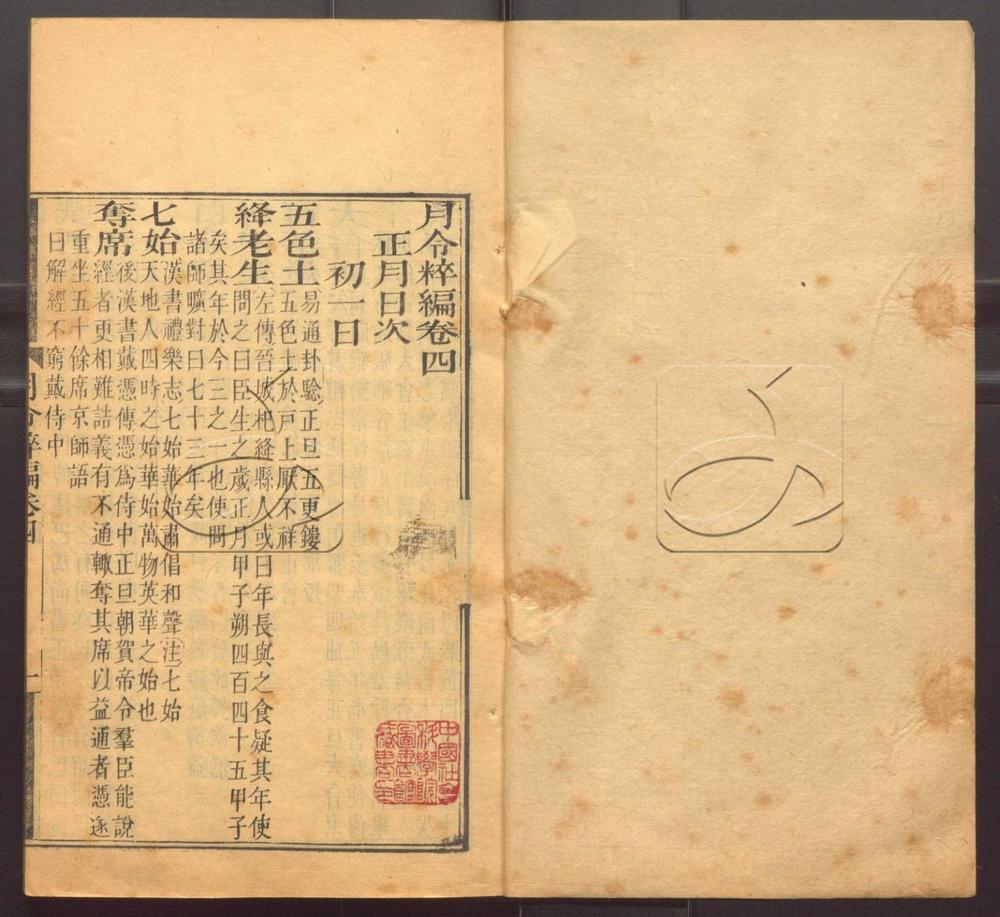 月令粹編卷四
正月日次
初一日
五色土易通卦驗正旦五更鏤
五色土於戸上厭不祥
絳老生左傳晉城杞絳縣人或曰年長與之食疑其年使
問之曰臣生之歲正月甲子朔四百四十五甲子
矣其年於今三之一也使問
諸師曠對曰七十三年矣
七始漢書禮樂志七始華始肅倡和聲注七始
天地人四時之始華始萬物英華之始也
奪席後漢書戴憑傳憑爲侍中正旦朝賀帝令羣臣能說
經者更相難詰義有不通輙奪其席以益通者憑遂
重坐五十餘席京師語
曰解經不窮戴侍中
月令粹編卷四
一
中國社會
科學院
圖書館
藏書